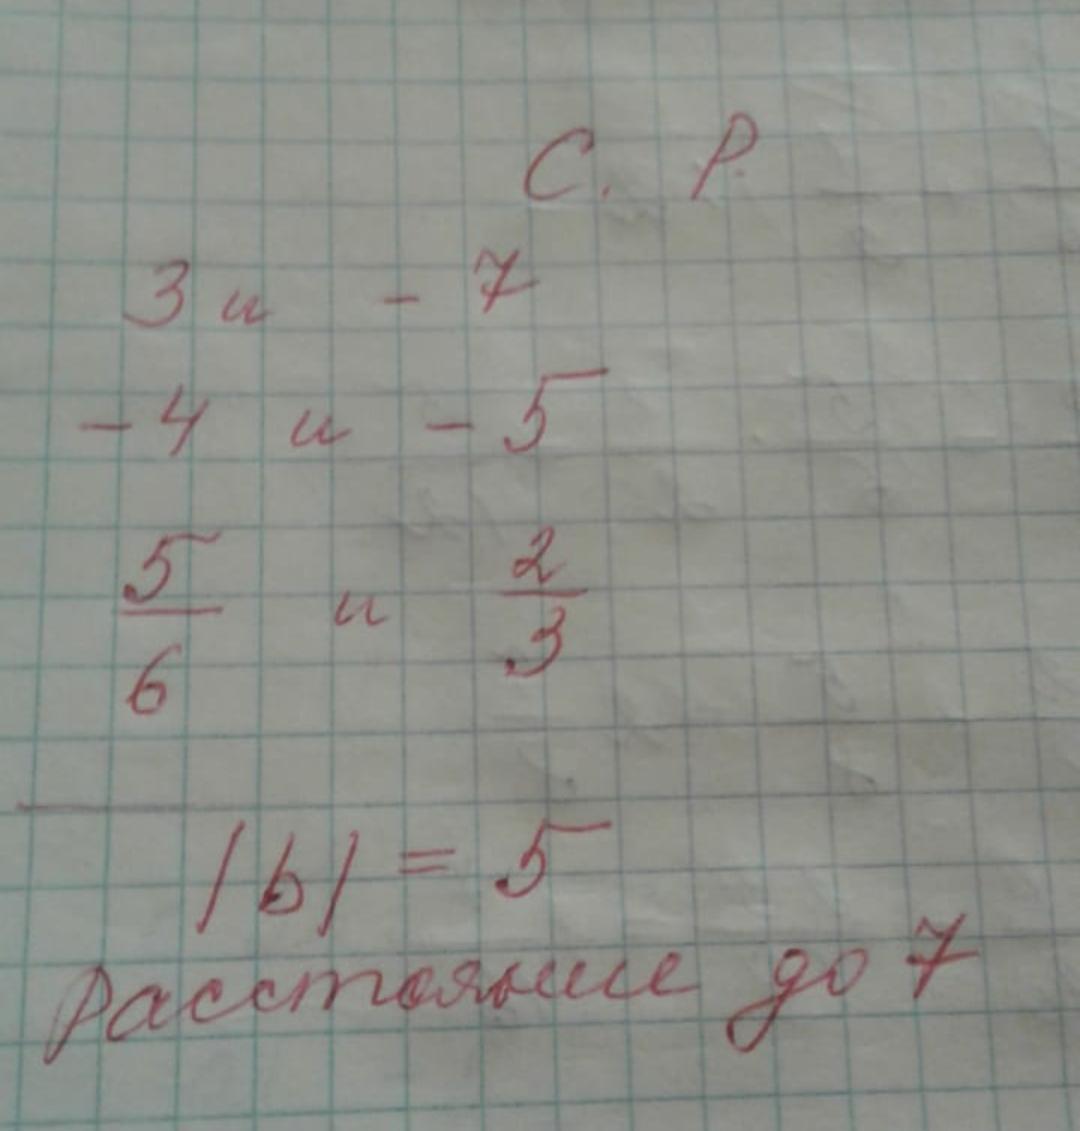 С. Р.
3 и - 7
- 4 и - 5
5/6 и 2/3
|b| = 5
Расстояние до 7